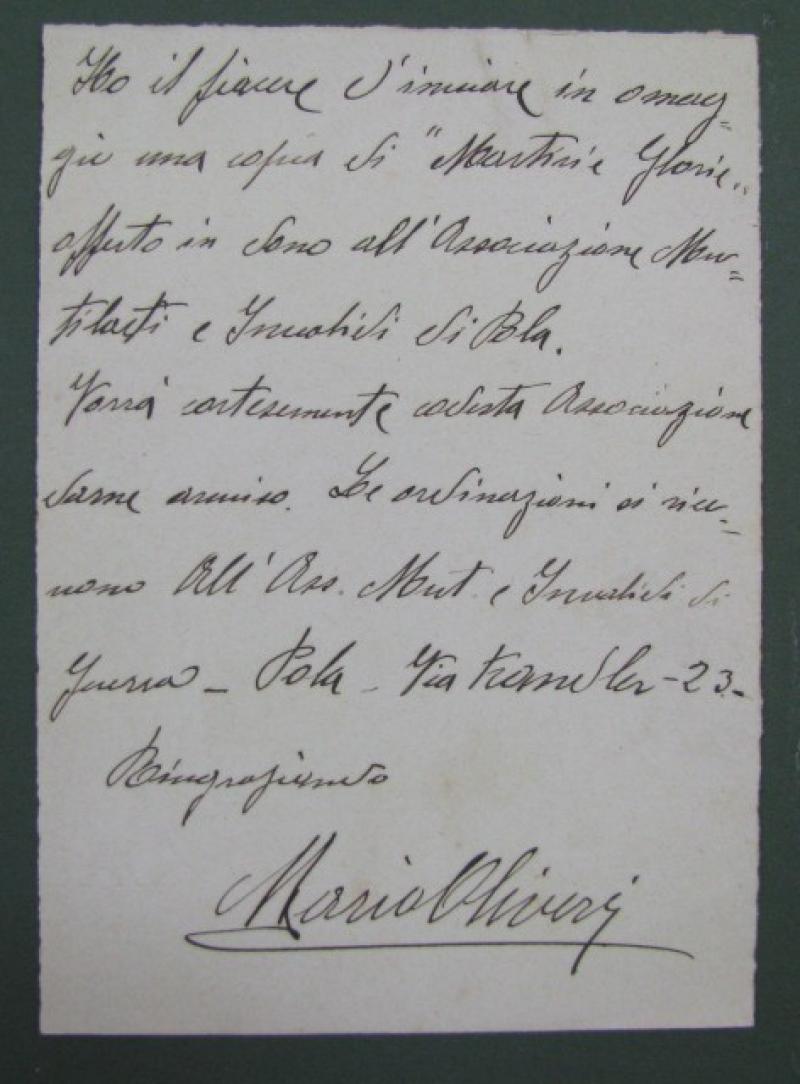 Ho il piacere d'inviare in omag=
gio una copia di "Martiri e Glorie"
offerto in dono all'Associazione Mu=
tilati e Invalidi di Pola.
Vorrà cortesemente codesta Associazione
darne avviso. Le ordinazioni si rice=
vono All'Ass. Mut. e Invalidi di
Guerra - Pola - Via Kandler - 23 -
Ringraziando
Mario Oliveri